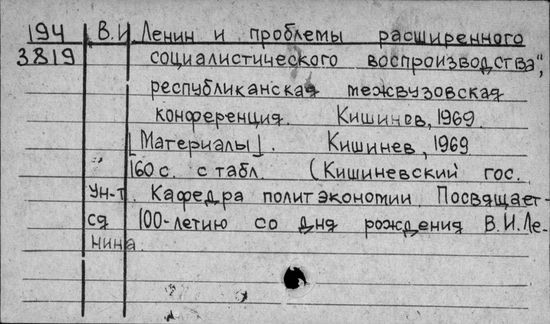 194 В.И. Ленин и проблемы расширенного
3819 социалистического воспроизводства",
республиканская межвузовская
конференция. Кишинев, 1969.
[Материалы]. Кишинев, 1969
160 с. с табл. (Кишиневский гос.
ун-т. Кафедра политэкономии. Посвящает-
ся 100-летию со дня рождения В.И.Ле-
нина.